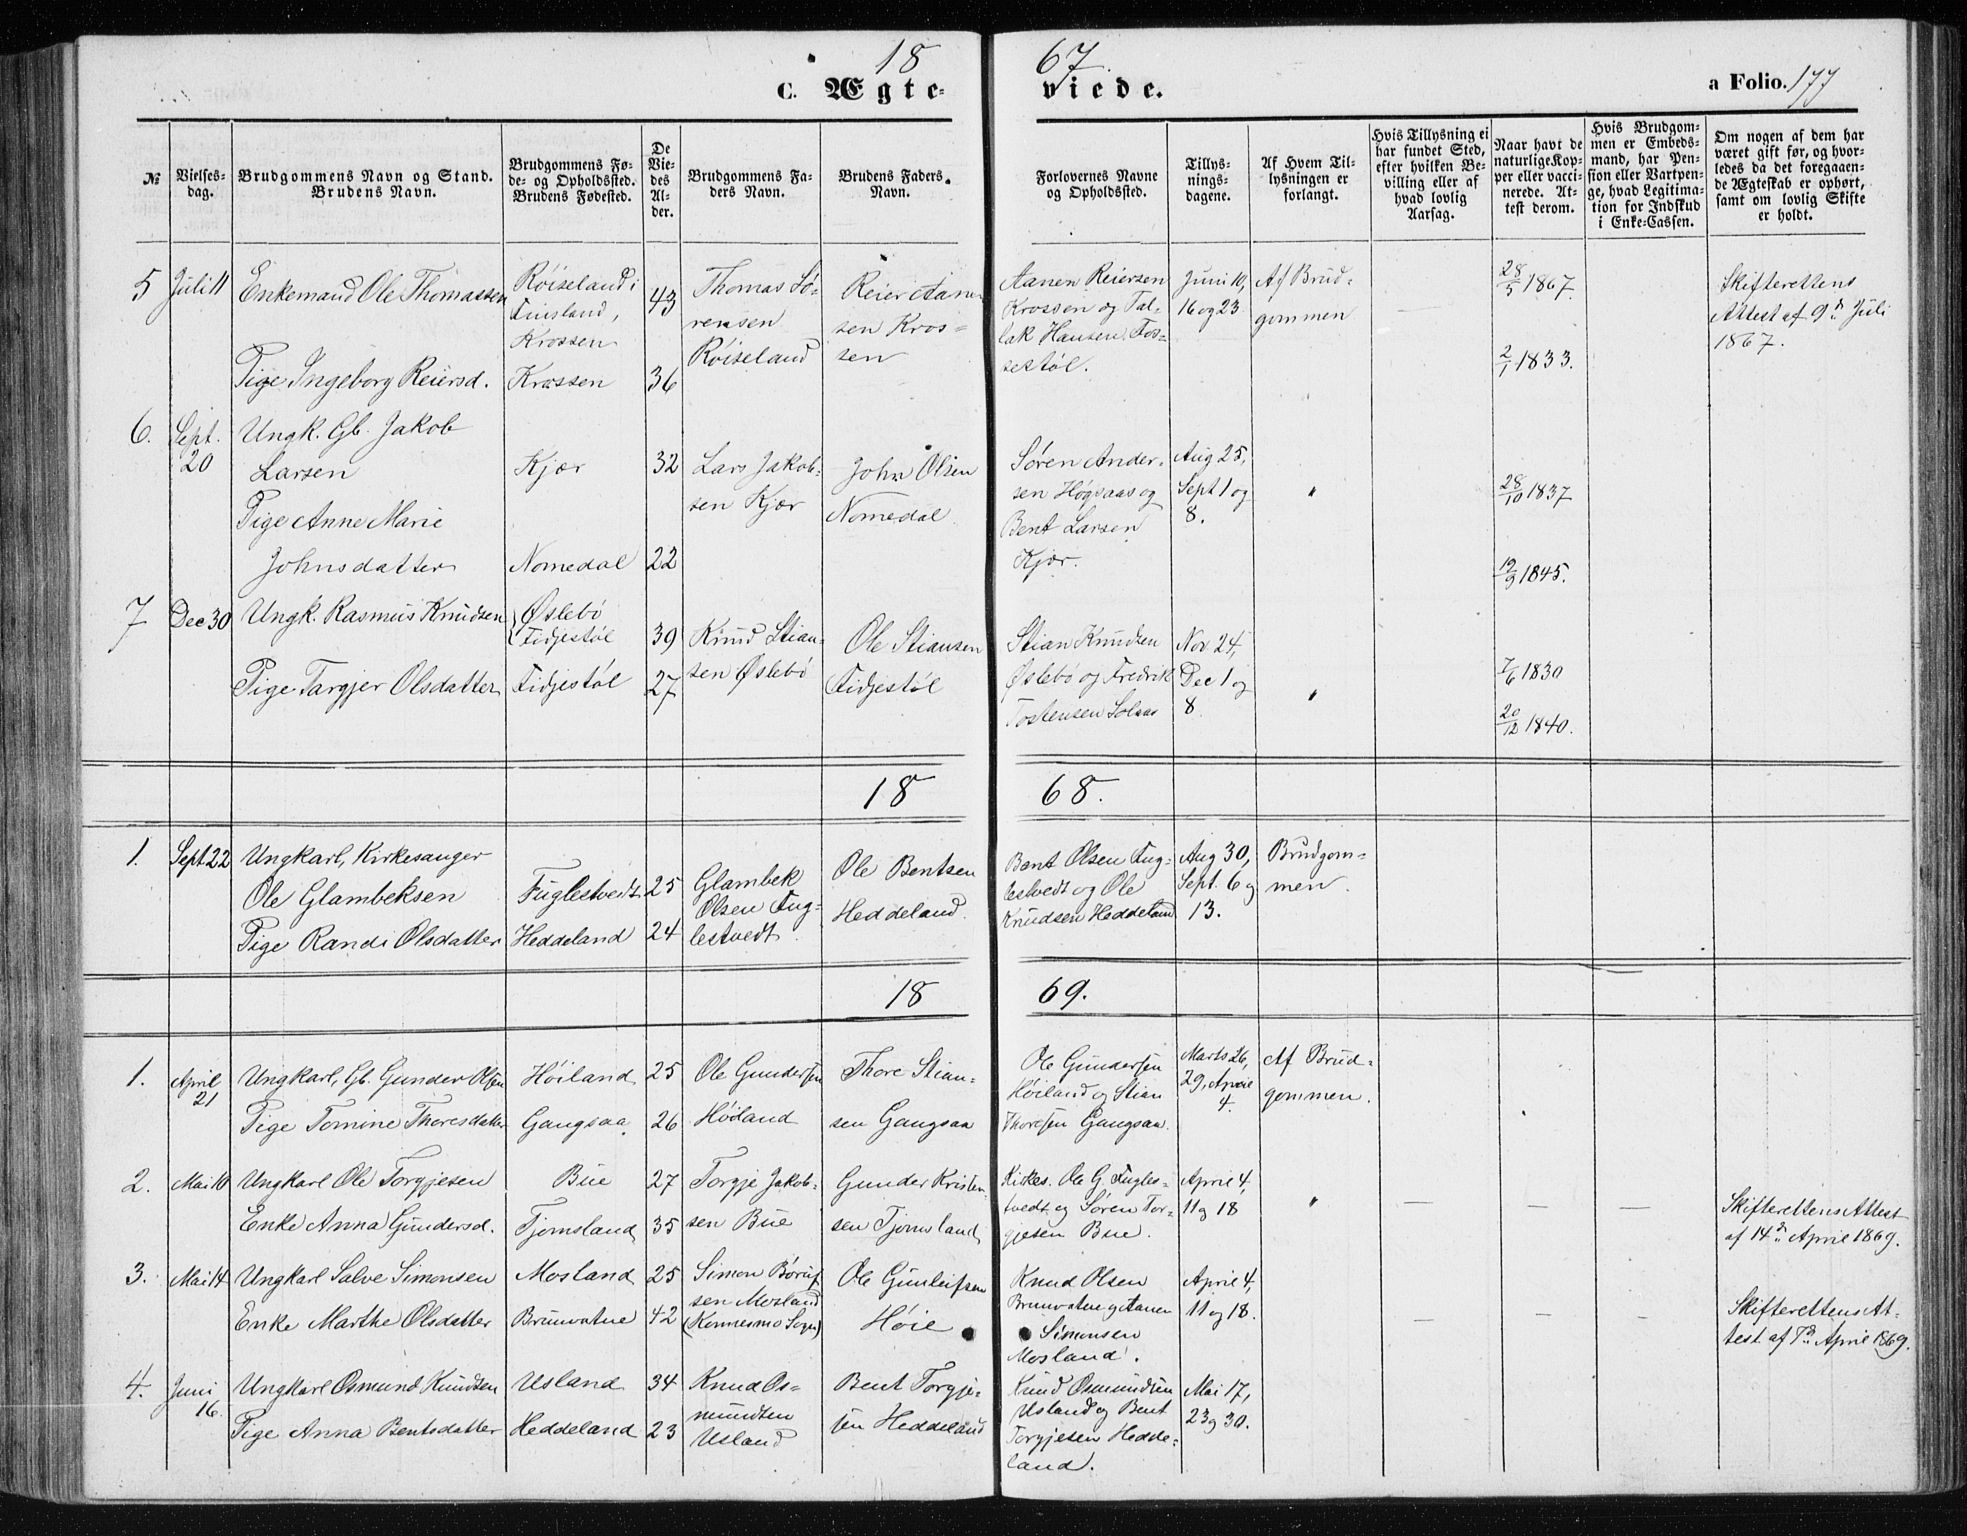 18 67.
c. Ægte- viede. a Folio. 177
№
Vielses-
dag.
Brudgommens Navn og Stand.
Brudens Navn.
Brudgommens Fø-
de- og Opholdssted.
Brudens Fødested.
De
Vie-
des
Al-
der.
Brudgommens Fa-
ders Navn.
Brudens Faders
Navn.
Forlovernes Navne
og Opholdssted.
Tillys-
nings-
dagene.
Af Hvem Til-
lysningen er
forlangt.
Hvis Tillysning ei
har fundet Sted,
efter hvilken Be-
villing eller af
hvad lovlig
Aarsag.
Naar havt de
naturlige Kop-
per eller vacci-
nerede. At-
test derom.
Hvis Brudgom-
men er Embeds-
mand, har Pen-
sion eller Vartpen-
ge, hvad Legitima-
tion for Indskud
i Enke-Cassen.
Om nogen af dem har
været gift før, og hvor-
ledes da det foregaaen-
de Ægteskab er ophørt,
samt om lovlig Skifte
er holdt.
5
Juli 11
Enkemand Ole Thomassen
Pige Ingeborg Reiersd.
Røiseland i
Finsland,
Krossen
Krossen
43
36
Thomas Sø-
rensen
Røiseland
Reier Aanen-
sen Kros-
sen
Aanen Reiersen
Krossen og Tal-
lak Hansen Fos-
sestøl.
Juni 10,
16 og 23
Af Brud-
gommen
28/5 1867.
2/1 1833.
Skifterettens
Attest af 9d Juli
1867.
6.
Sept.
20
Ungk. Gb. Jakob
Larsen
Pige Anne Marie
Johnsdatter
Kjær
Nomedal
32
22
Lars Jakob-
sen Kjær
John Olsen
Nomedal
Søren Ander-
sen Høgsaas og
Bent Larsen
Kjær.
Aug 25,
Sept 1 og
8.
"
28/10 1837
19/9 1845.
7
Dec 30
Ungk. Rasmus Knudsen
Pige Targjer Olsdatter
Øslebø
Fidjestøl
Fidjestøl
39
27
Knud Stian-
sen Øslebø
Ole Stiansen
Fidjestøl
Stian Knudsen
Øslebø og Fredrik
Tostensen Solaas
Nov 24,
Dec 1 og
8
"
7/6 1830
20/12 1840.
18 68.
1.
Sept 22
Ungkarl, Kirkesanger
Ole Glambeksen
Pige Randi Olsdatter
Fuglestvedt
Heddeland
25
24
Glambek
Olsen Fug-
lestvedt
Ole Bentsen
Heddeland
Bent Olsen Fug-
lestvedt og Ole
Knudsen Heddeland
Aug 30,
Sept. 6 og
13.
Brudgom-
men.
18 69.
1.
April
21
Ungkarl, Gb. Gunder Olsen
Pige Tomine Thoresdatter
Høiland
Gangsaa
25
26
Ole Gundersen
Høiland
Thore Stian-
sen Gangsaa
Ole Gundersen
Høiland og Stian
Thoresen Gangsaa.
Marts 26,
29, April
4.
Af Brud-
gommen.
2.
Mai 10
Ungkarl Ole Torgjesen
Enke Anna Gundersd.
Bue
Tjomsland
27
35
Torgje Jakob-
sen Bue
Gunder Kristen-
sen Tjomsland
Kirkes. Ole G. Fugles-
tvedt og Søren Tor-
gjesen Bue.
April 4,
11 og 18
"
Skifterettens Attest
af 14d April 1869.
3.
Mai 14
Ungkarl Salve Simonsen
Enke Marthe Olsdatter
Mosland
Brunvatne
25
42
Simon Børuf-
sen Mosland
(Konnesmo Sogn)
Ole Gunleifsen
Høie
Knud Olsen
Brunvatne og Aanen
Simonsen
Mosland.
April 4,
11 og 18.
Skifterettens At-
test af 7d April 1869.
4.
Juni
16.
Ungkarl Osmund Knudsen
Pige Anna Bentsdatter
Usland
Heddeland
34
23
Knud Os-
mundsen
Usland
Bent Torgje-
sen Heddeland
Knud Osmundsen
Usland og Bent
Torgjesen Hedde-
land.
Mai 17,
23 og 30.